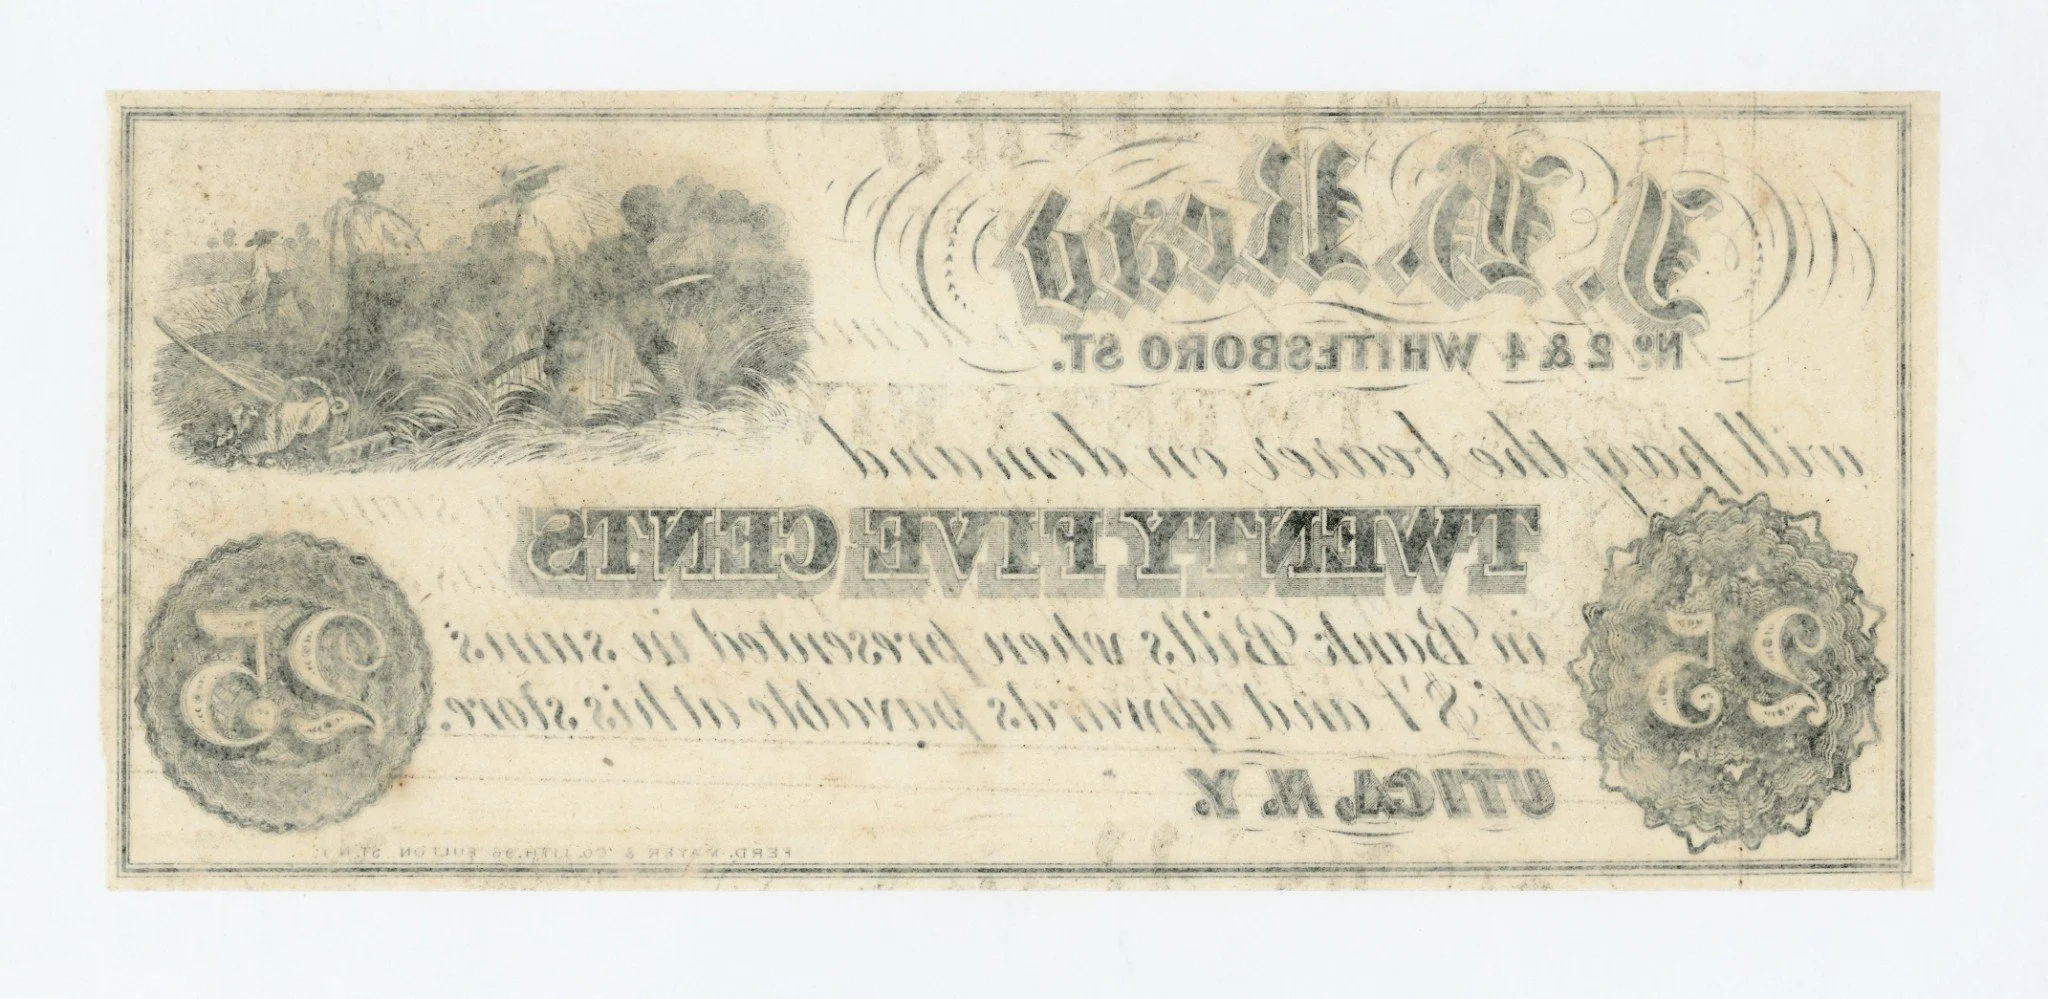 Read
No. 2 & 4 WHITESBORO ST.
will pay the bearer on demand
TWENTY FIVE CENTS
in Bank Bills when presented in sums
of $1 and upwards payable at his store.
25
25
UTICA, N. Y.
FERD. MAYER & CO. LITH. 96 FULTON ST. N.Y.